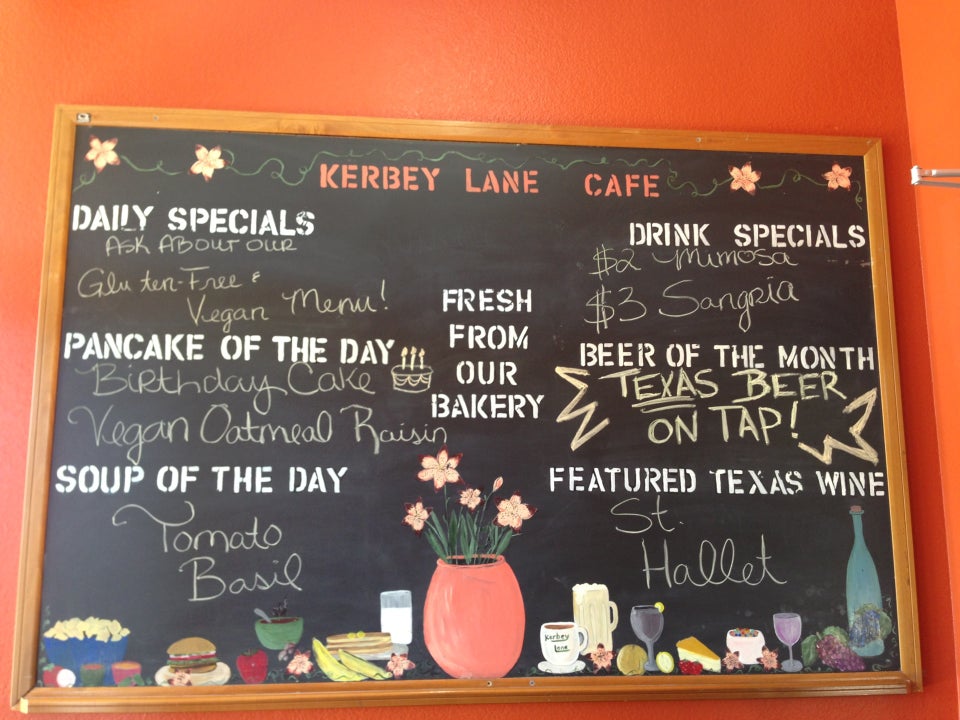 KERBEY LANE CAFE
DAILY SPECIALS
ASK ABOUT OUR
Gluten-Free &
Vegan Menu!
PANCAKE OF THE DAY
Birthday Cake
Vegan Oatmeal Raisin
SOUP OF THE DAY
Tomato
Basil
FRESH
FROM
OUR
BAKERY
DRINK SPECIALS
$2 Mimosa
$3 Sangria
BEER OF THE MONTH
TEXAS BEER
ON TAP!
FEATURED TEXAS WINE
St.
Hallet
Kerbey
Lane